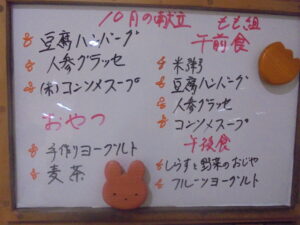 10月の献立 もも組
豆腐ハンバーグ
人参グラッセ
(米)コンソメスープ
おやつ
手作りヨーグルト
麦茶
午前食
米粥
豆腐ハンバーグ
人参グラッセ
コンソメスープ
午後食
しらすと野菜のおじや
フルーツヨーグルト